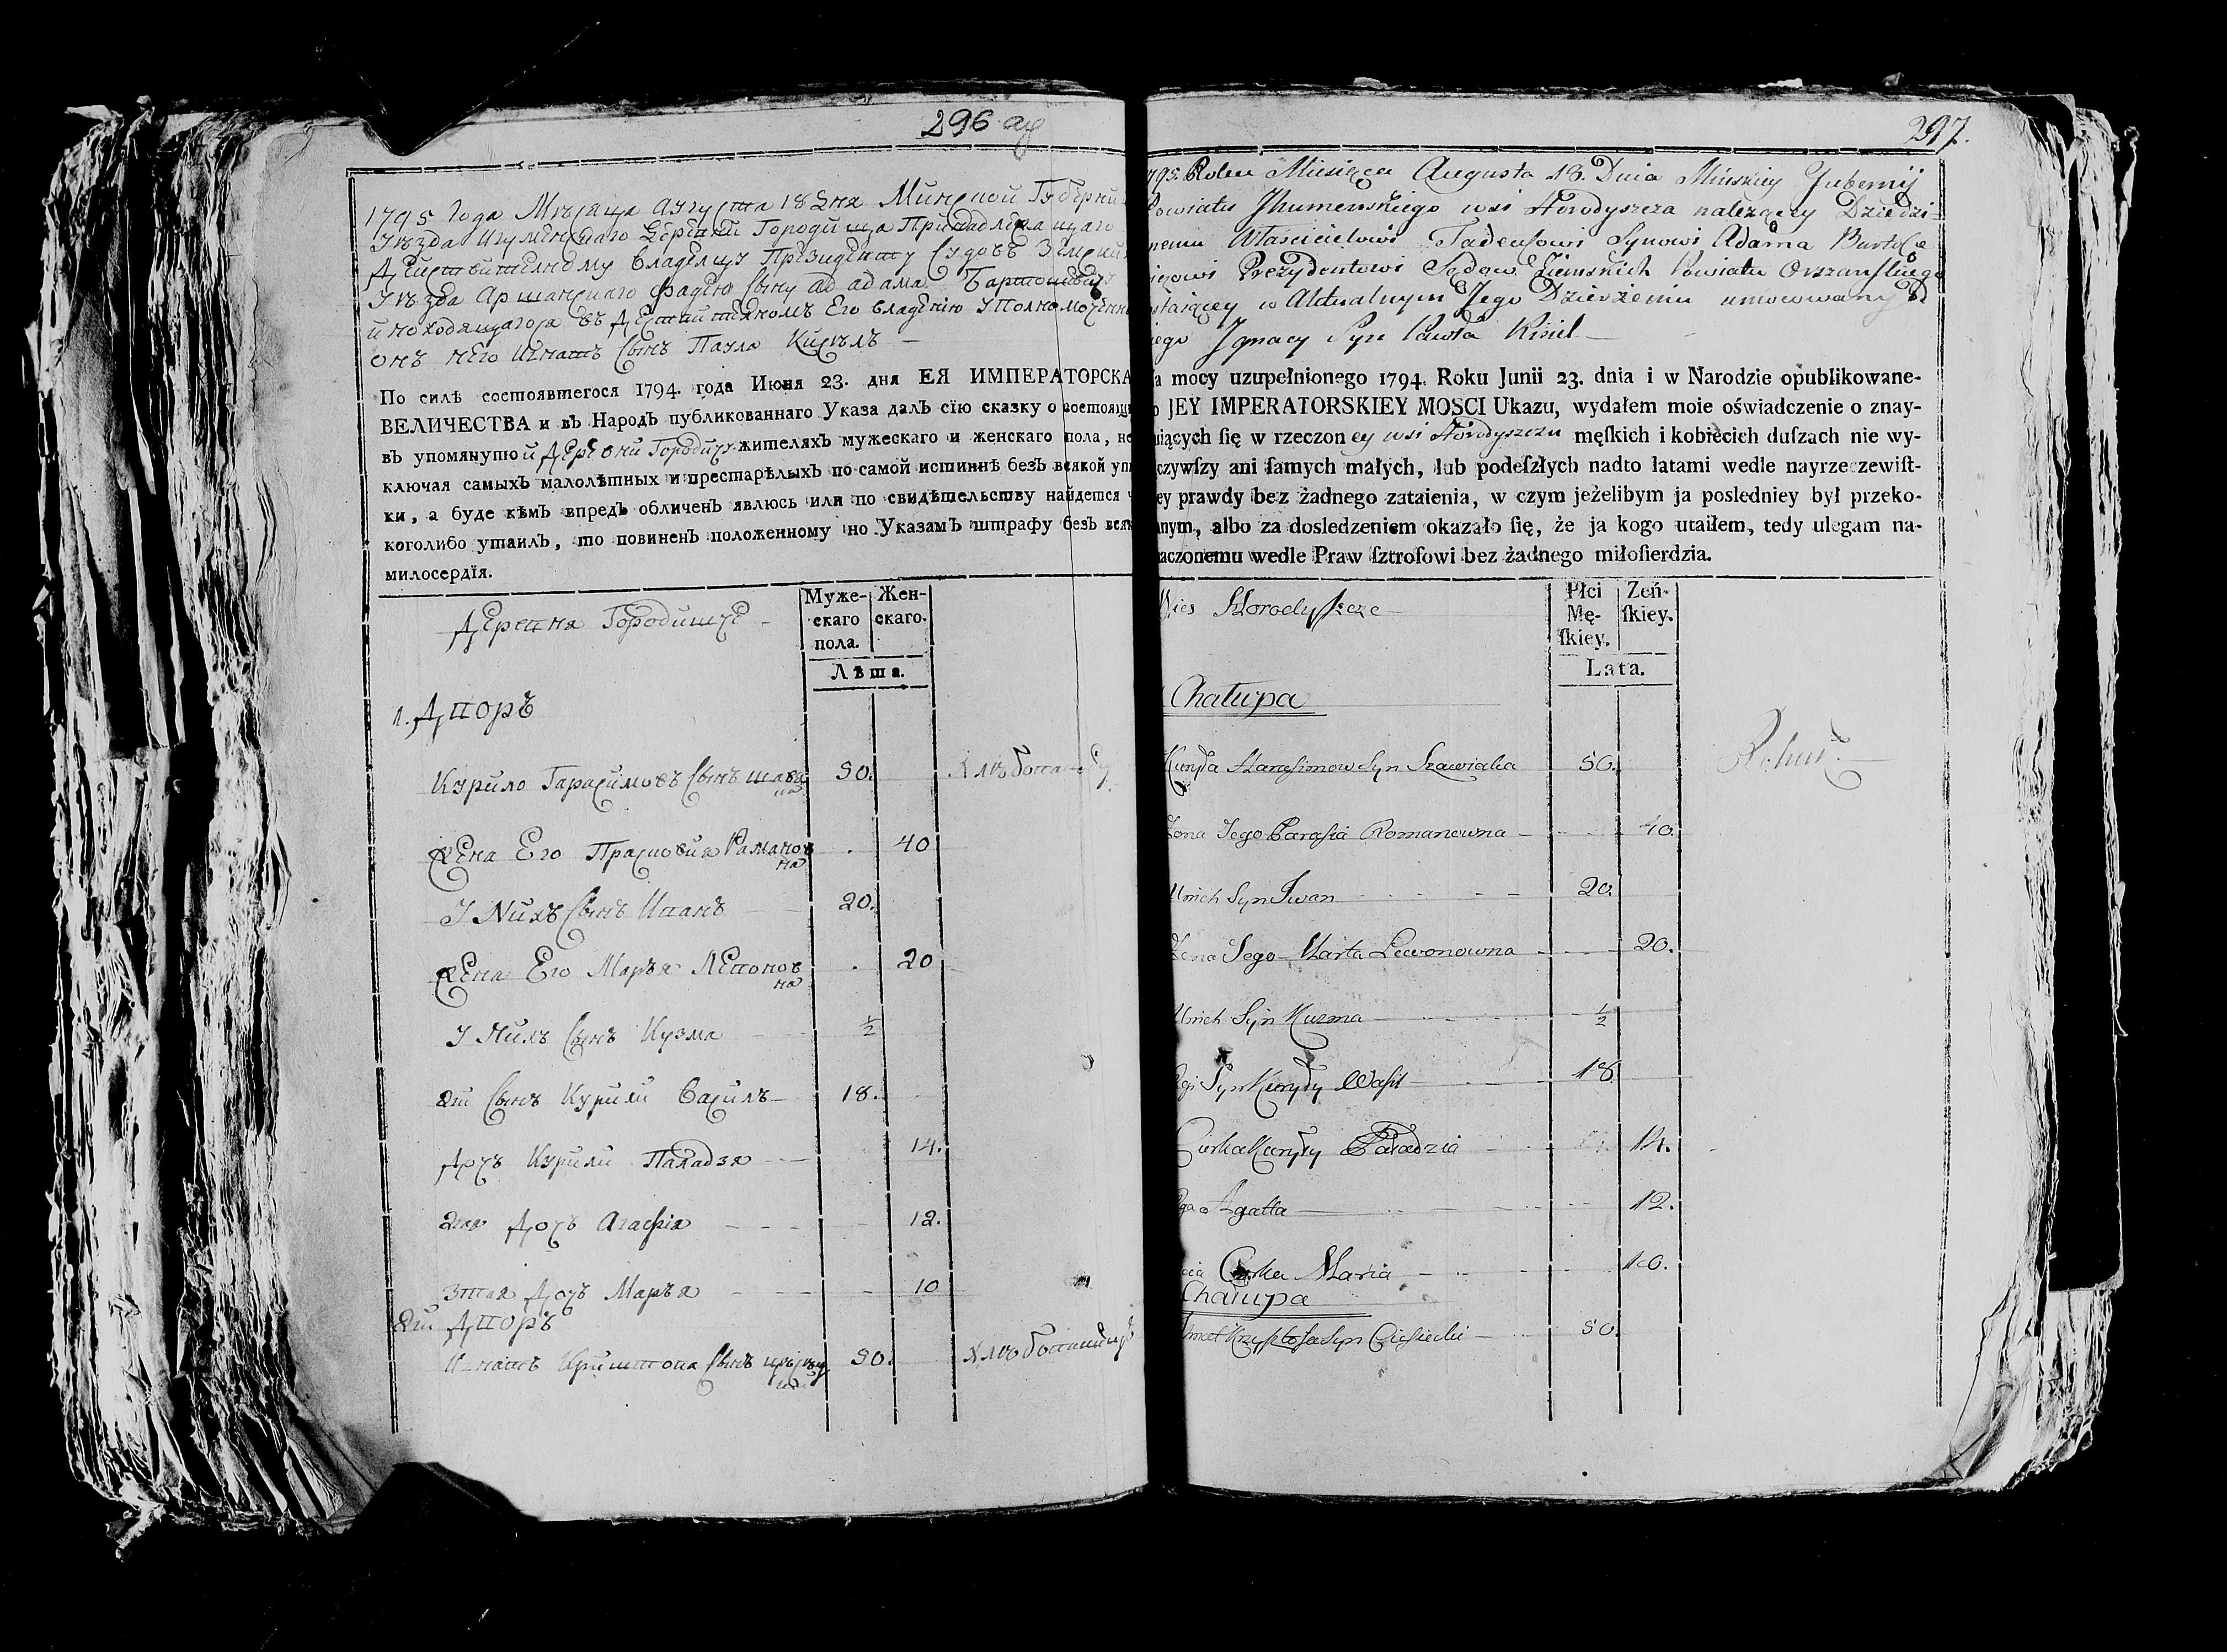 296 об
1795 Года Мѣсяца Августа 18 Дня Минской Губернии
Уѣзда Игуменскаго Деревни Городища Принадлежащаго
Действителному владелцу Президенту Судовъ Земских
Уѣзда Аршанскаго Фадею сыну Адама
въ Его владению
онъ него Игнатъ Сынъ Паула Кисѣлъ —
По силѣ состоявшегося 1794. года Июня 23. дня ЕЯ ИМПЕРАТОРСКА
ВЕЛИЧЕСТВА и въ Народъ публикованнаго Указа далъ сїю сказку о состоящи
въ упомянутой Деревни Городищ жителяхъ мужескаго и женскаго пола, не
ключая самыхъ малолѣтных и престарѣлыхъ по самой истиннѣ безъ всякой ут
ки, а буде кѣмъ впредь обличенъ явлюсь или по свидѣтельству найдется ч
коголибо утаилъ, то повиненъ положенному по Указамъ штрафу безъ вся
милосердїя.
Деревня Городище —
Муже-
скаго
пола.
Жен-
скаго.
Лѣта.
1. Дворъ
Курило Гарасимовъ Сынъ 50.
Жена Его Прасковия Раманов
на . 40
У Них Сынъ Иванъ 20.
Жена Его Маръя Левонов
на . 20
У Них Сынъ Кузма ½
2й Сынъ Курили Василъ — 18.
Дочъ Курили Паладзя — 14.
2гая Дочъ Агафия 12.
3тая Дочъ Маръя 10
2й Дворъ
Игнатъ Криштопа Сынъ 50.
297.
1795. Roku Miesiąca Augusta 18. Dnia Minskiey Gubernij
Powiatu Jhumenskiego wsi Horodyszcza należącey Dziedzi-
nemu Właścicielowi Tadeuszowi Synowi Adama
Prezydentowi Sądow Ziemskich Powiatu Orszanskiego
w Aktualnym Jego Dzierżeniu umocowany
iego Jgnacy Syn Pawła Kisiel —
a mocy uzupełnionego 1794. Roku Junii 23. dnia i w Narodzie opublikowane-
o JEY IMPERATORSKIEY MOSCI Ukazu, wydałem moie oświadczenie o znay-
uiących ſię w rzeczoney wsi Horodyszczu męſkich i kobiecich duſzach nie wy-
czywſzy ani ſamych małych, lub podeſzłych nadto latami wedle nayrzeczewiſt-
ey prawdy bez żadnego zataienia, w czym jeżelibym ja posledniey był przeko-
anym, albo za dosledzeniem okazało ſię, że ja kogo utaiłem, tedy ulegam na-
aczonemu wedle Praw ſztrofowi bez żadnego miłoſierdzia.
Wieś Horodyſzcze —
Płci
Mę-
ſkiey.
Zeń-
ſkiey.
Lata.
Chałupa
Kuryła Harasimow Syn 50.
Żona Jego Parasia Romanowna — 40.
Unich Syn Jwan 20.
Żona Jego Marta Lewonowna 20.
Unich Syn Kuzma ½
Syn Kuryły Wasil 18
Curka Kuryły Paładzia 14.
Agatta 12.
Curka Maria 10.
Chałupa
Krzysztofa Syn 50.